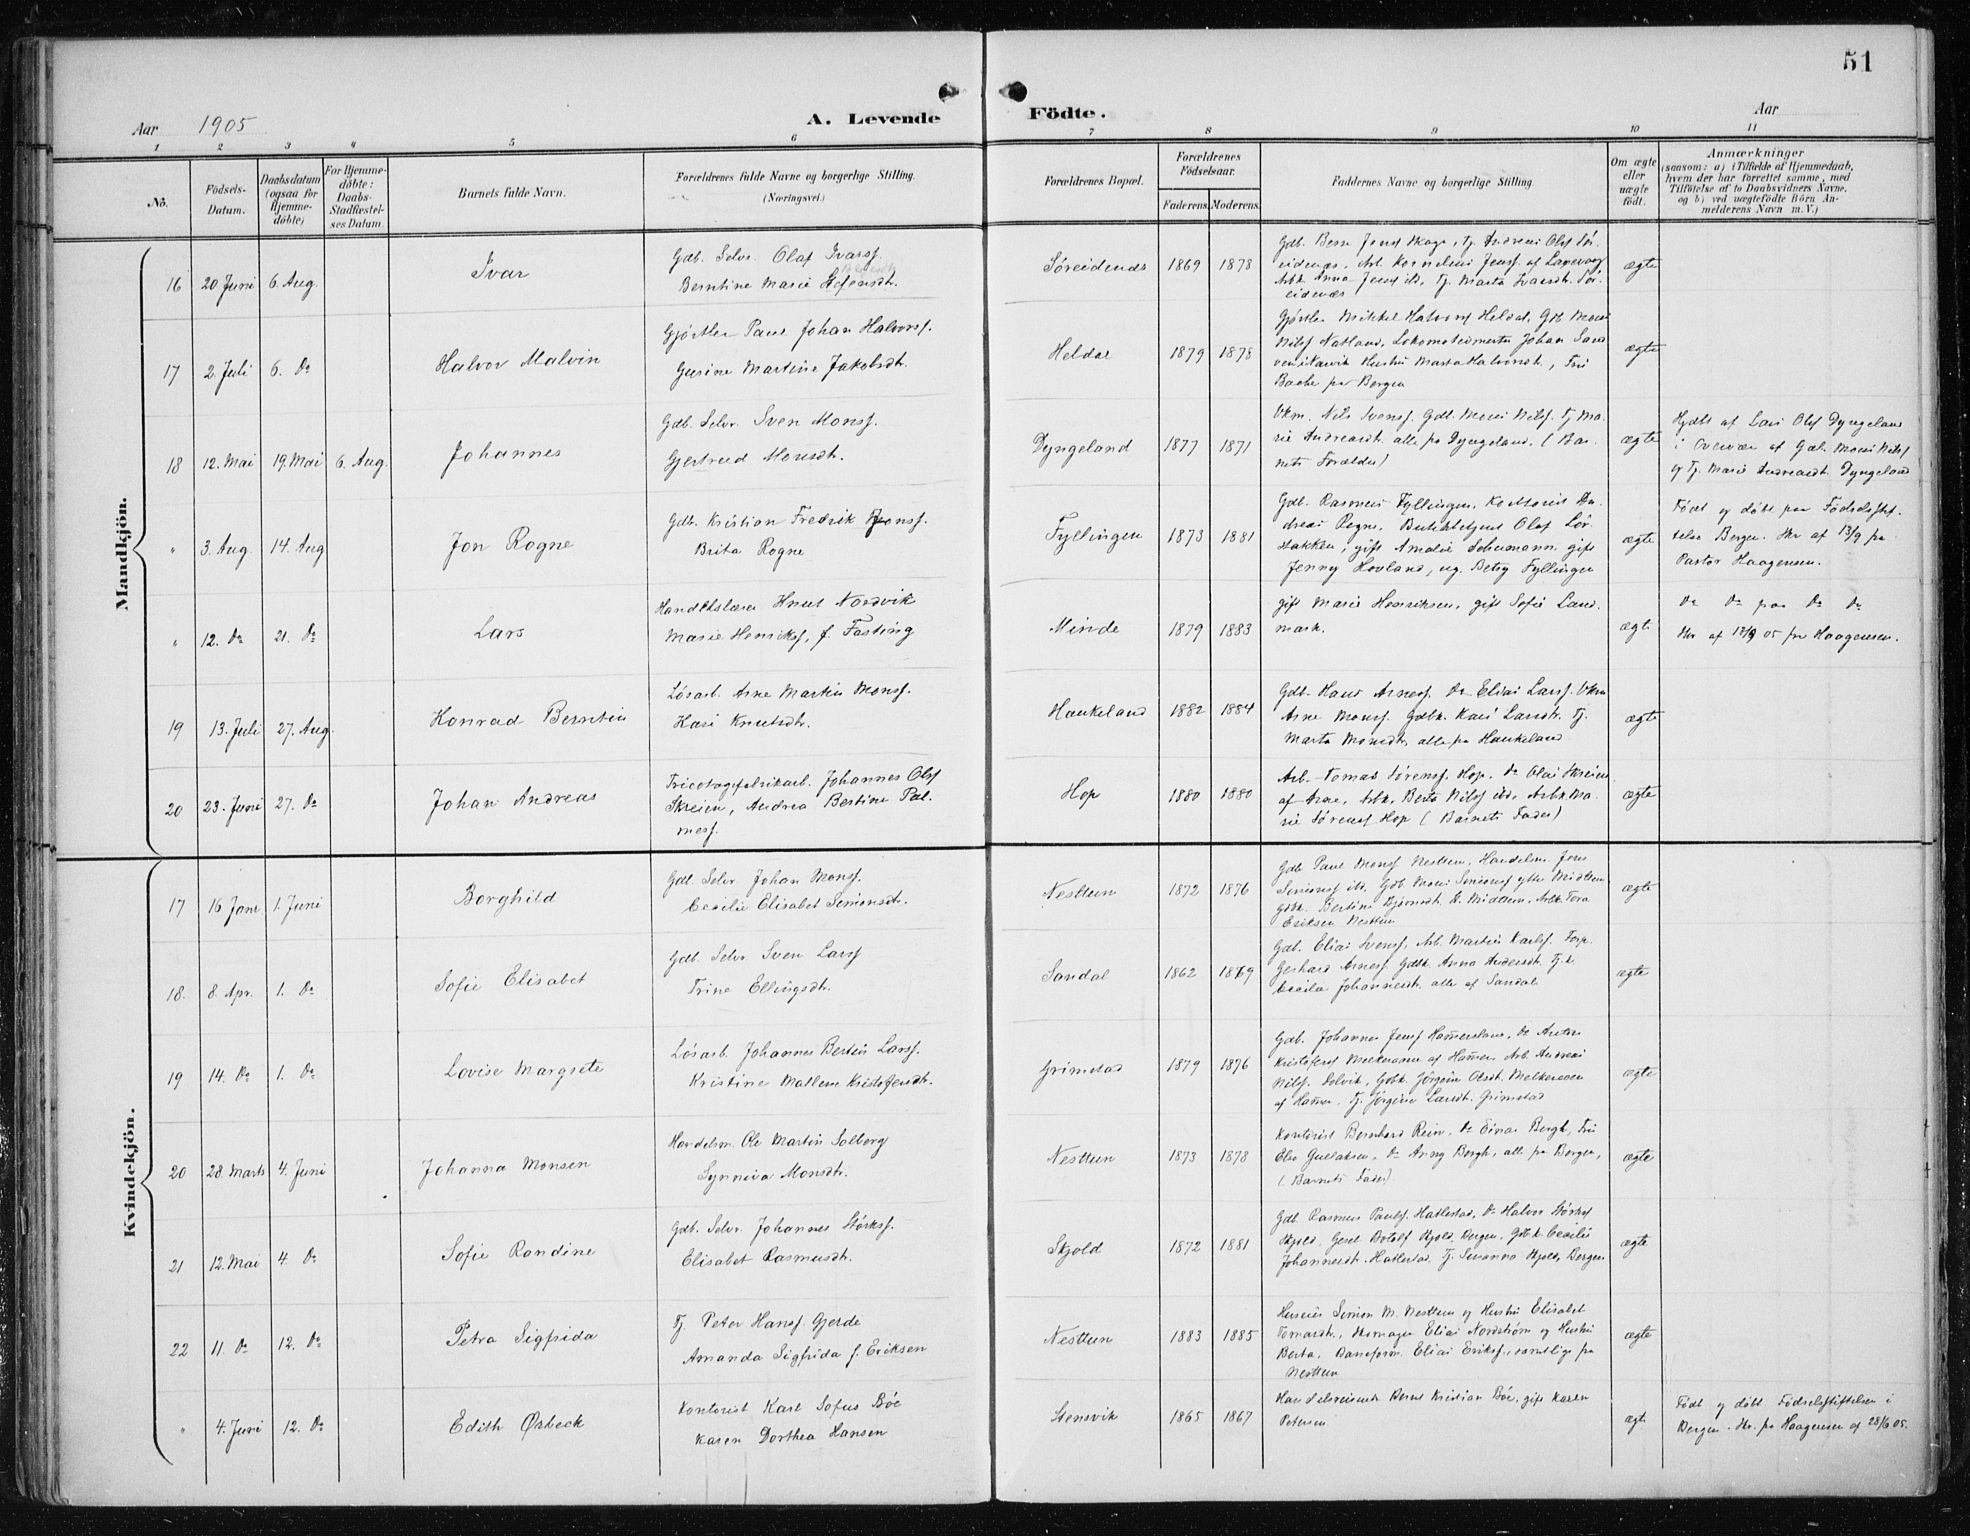 51
Aar 1905
A. Levende Födte.
Aar
1 2 3 4 5 6 7 8 9 10 11
No.
Födsels-Datum.
Daabsdatum (ogsaa for Hjemme-döbte)
For Hjemme-döbte: Daabs-Stadfæstel-ses Datum.
Barnets fulde Navn.
Forældrenes fulde Navne og borgerlige Stilling.
(Næringsvei.)
Forældrenes Bopæl.
Forældrenes Födselsaar.
Faderens. Moderens.
Faddernes Navne og borgerlige Stilling.
Om ægte eller uægte födt.
Anmærkninger
(saasom: a) i Tilfælde af Hjemmedaab,
hvem der har forrettet samme, med
Tilföielse af to Daabsvidners Navne,
og b) ved uægtefödte Börn An-
melderens Navn m. V.)
Mandkjön.
16 20 Juni 6. Aug. Ivar
Gdb. Selv. Olaf Ivarss.
Berntine Marie
Søreidenæs 1869 1878
ægte
17 2. Juli 6. Do Halvor Malvin
Gjørtler Paul Johan Halvorss.
Gurine Martine Jakobsdt.
Heldal 1879 1878
Gjørtler Mikkel Halvorss Heldal, Gdb Mons
Nilss Natland, Johan
Hustru Marta Halvorsdt.,
Bache fra Bergen
ægte
18 12. Mai 19. Mai 6. Aug. Johannes
Gdb. Selv. Sven Monss.
Gjertrud Monsdt.
Dyngeland 1877 1871
Ukm. Nils Svenss. Gdb. Mons Nilss. Tj. Ma-
rie Andreasdt. alle fra Dyngeland. (Bar-
nets Forældre)
ægte
Hjdbt af Lars Olss Dyngeland
i Overvær af Gdb. Mons Nilss
og Tj. Marie Andreasdt. Dyngeland
" 3. Aug. 14. Aug Jon Rogne
Gdb. Kristian Fredrik Jonss.
Brita Rogne
Fyllingen 1873 1881
Gdb. Rasmus Fyllingen, Kontorist An-
dreas Rogne, Olaf Lør-
stakken, gift Amalie Schumann, gift
Jenny Hovland, ug. Betsy Fyllingen
ægte
Født og døbt paa Fødselsstif-
telse Bergen. Skr af 13/9 fra
Pastor Haagensen.
" 12. Do 21. Do Lars
Handelslærer Knut Nordvik
Marie Henriks., f. Fasting
Minde 1879 1883
gift Marie Henriksen, gift Sofie Land-
mark.
ægt.
Do Do paa Do Do
Skr af 13/9 05 fra Haagensen.
19 13. Juli 27. Aug. Konrad Berntin
Løsarb. Arne Martin Monss.
Kari Knutsdt.
Haukeland 1882 1884
Gdb. Hans Arness. Do Elias Larss. Ukm
Arne Monss. Gdbk. Kari Larsdt. Tj.
Marta Monsdt, alle fra Haukeland
ægte
20 23. Juni 27. Do Johan Andreas
Tricotagefabrikarb. Johannes Olss
Skreien, Andrea Bertine Pal-
mess.
Hop 1880 1880
Arb. Tomas Sørenss. Hop. Do Olai Skreien
af Arne, Arbk. Berta Nilss ibd, Arbk Ma-
rie Sørenss Hop (Barnets Fader)
ægte
Kvindekjön.
17 16 Janr. 1. Juni Borghild
Gdb. Selv. Johan Monss.
Cecilie Elisabet Simonsdt.
Nesttun 1872 1876
Gdb Paul Monss Nesttun, Handelsm. Jens
Simonss ibd, Gdb Mons Simonss ytre Midttun
Gdbk. Bertine Bjørnsdt. Midttun, Arbk Tora
Eriksen Nesttun
ægte
18. 8. Apr. 1. Do Sofie Elisabet
Gdb. Selv. Sven Larss
Trine Ellingsdt.
Sandal 1862 1869
Gdb. Elias Svenss, Arb. Martin Karlss.
Gerhard Arness. Gdbk. Anna Andersdt. Tj.
Cecilia Johannesdt. alle af Sandal
ægte
19 14. Do 1. Do Lovise Margrete
Løsarb. Johannes Bertin Larss.
Kristine Matlene Kristofersdt.
Grimstad 1879 1876
Gdb. Johannes Jenss Hammersland, Do Anton
Kristoferss af Hammer, Arb. Andreas
Nilss. Dolvik, Gdbk. Jørgine Olsdt.
af Hammer. Tj. Jørgine Larsdt. Grimstad
ægte
20 28. Marts 4. Juni Johanna Monsen
Handelsm. Ole Martin Solberg
Synneva Monsdt.
Nesttun 1873 1878
Kontorist Bernhard Rein. Do Einar Bergh, Frk
Else Gullaksen, Do Anny Bergh, alle fra Bergen,
(Barnets Fader)
ægte
21 12. Mai 4. Do Sofie Randine
Gdb. Selv. Johannes Størkss.
Elisabet Rasmusdt.
Skjold 1872 1881
Gdb. Rasmus Paulss. Hatlestad, Do Halvor Størkss
Skjold, Botolf Skjold Bergen, Gdbk. Cecilie
Johannesdt. Hatlestad, Tj. Susanna Skjold, Bergen
ægte
22 11. Do 12. Do Petra Sigfrida
Tj. Peter Hanss. Gjerde
Amanda Sigfrida f. Eriksen
Nesttun 1883 1885
Huseier Simon M. Nesttun og Hustru Elisabet
Tomasdt., Skomager Elias Nordstrøm og Hustru
Berta, Baneform. Elias Erikss., samtlige fra
Nesttun
ægte
" 4. Juni 12. Do Edith Ørbeck
Kontorist Karl Sofus Bøe
Karen Dorthea Hansen
Stensvik 1865 1867
Handelsreisende Bernt Kristian Bøe, gift Karen
Petersen
ægt.
Født og døbt Fødselsstiftelsen i
Bergen. Skr. fra Haagensen af 28/6 05.